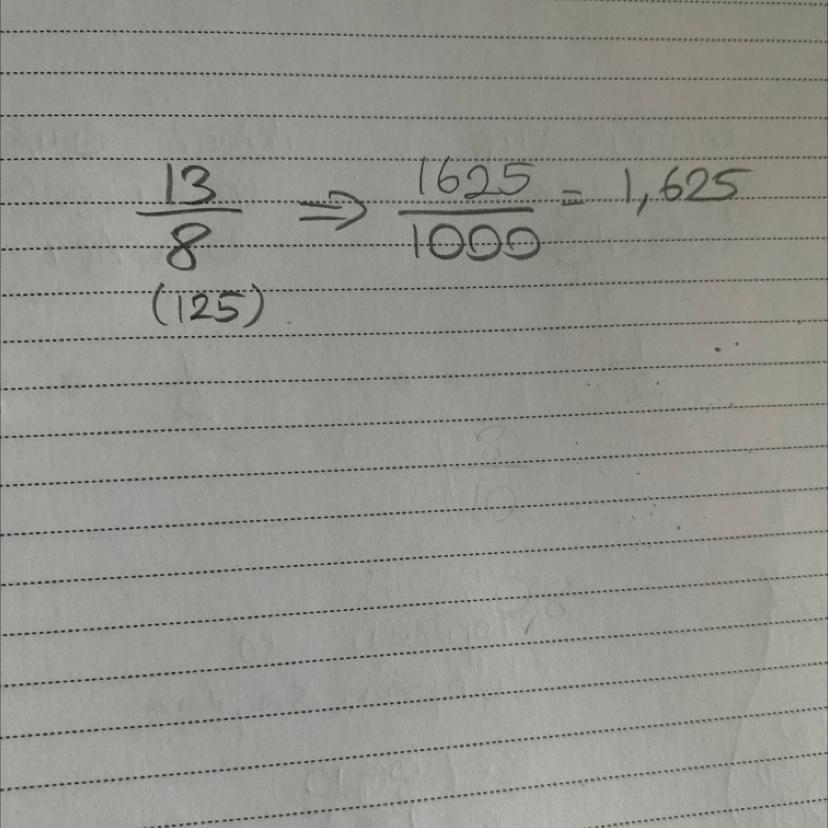 13/8 ⇒ 1625/1000 = 1,625
(125)